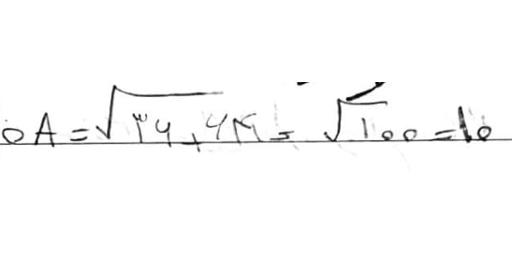 OA = √۳۶+۶۴ = √۱۰۰ = ۱۰